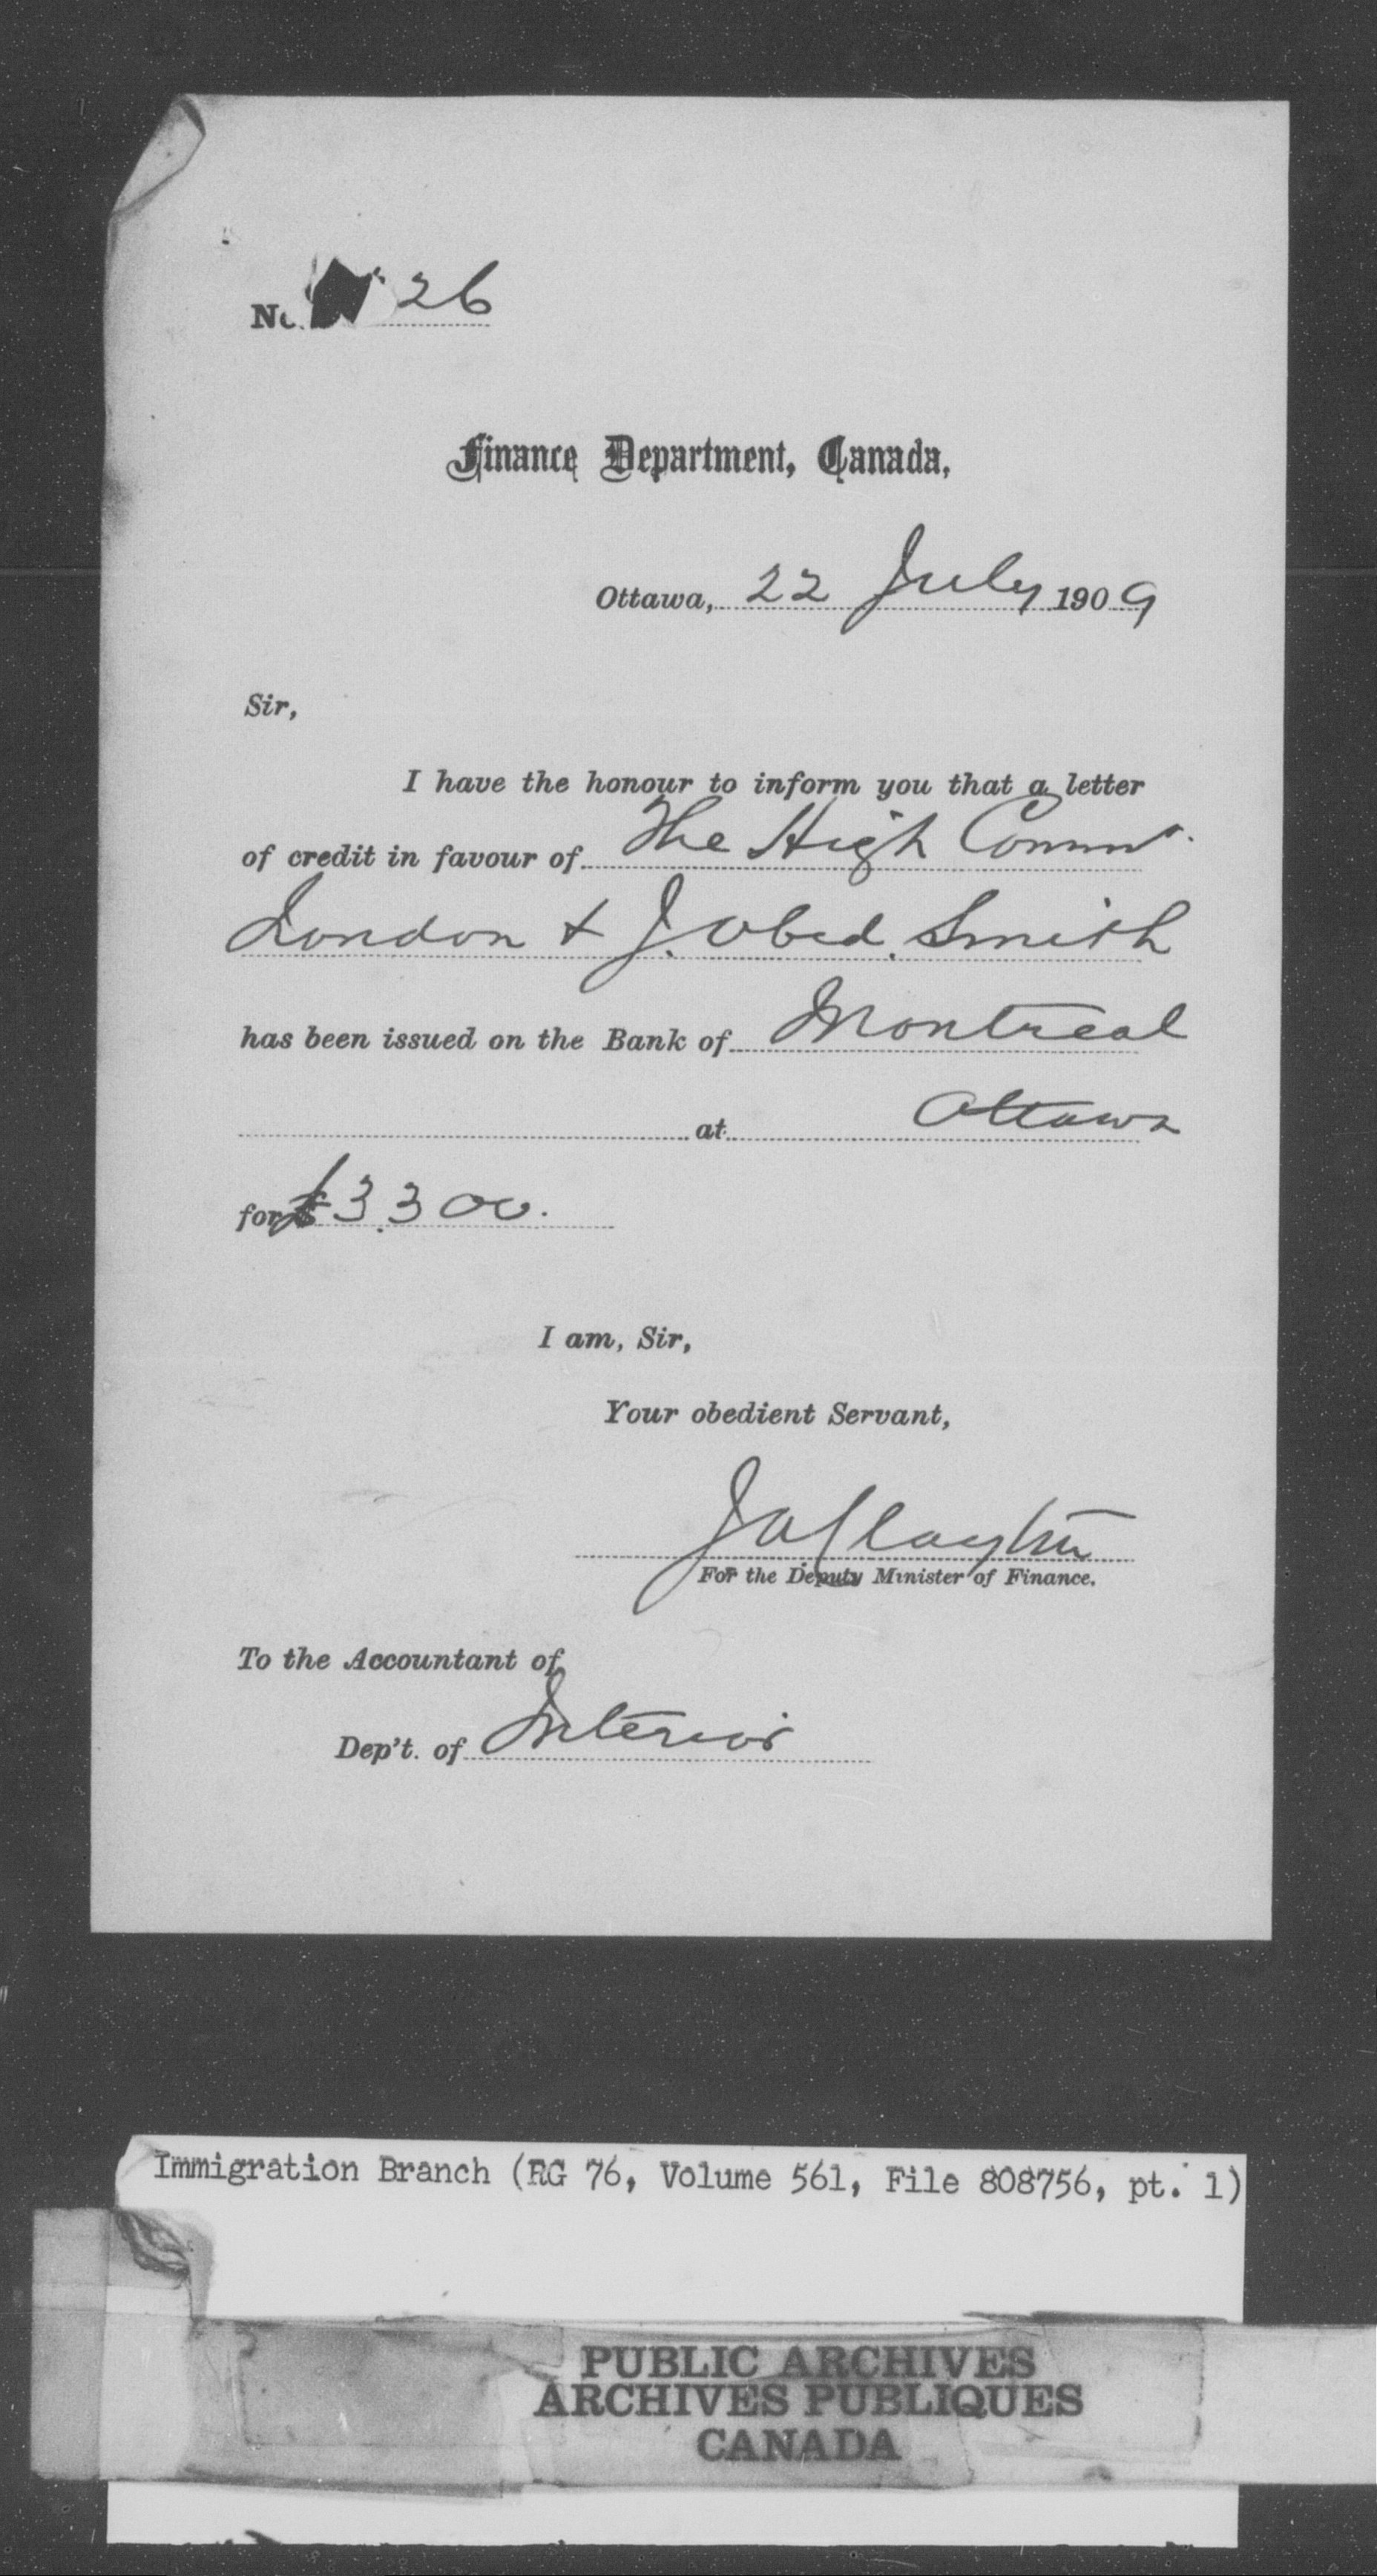 No. 26
Finance Department, Canada,
Ottawa, 22 July 1909
Sir,
I have the honour to inform you that a letter
of credit in favour of The High Commr.
London & J. Obed. Smith
has been issued on the Bank of Montreal
at Ottawa
for £3.300.
I am, Sir,
Your obedient Servant,
For the Deputy Minister of Finance.
To the Accountant of
Dep't. of Interior
Immigration Branch (RG 76, Volume 561, File 808756, pt. 1)
PUBLIC ARCHIVES
ARCHIVES PUBLIQUES
CANADA